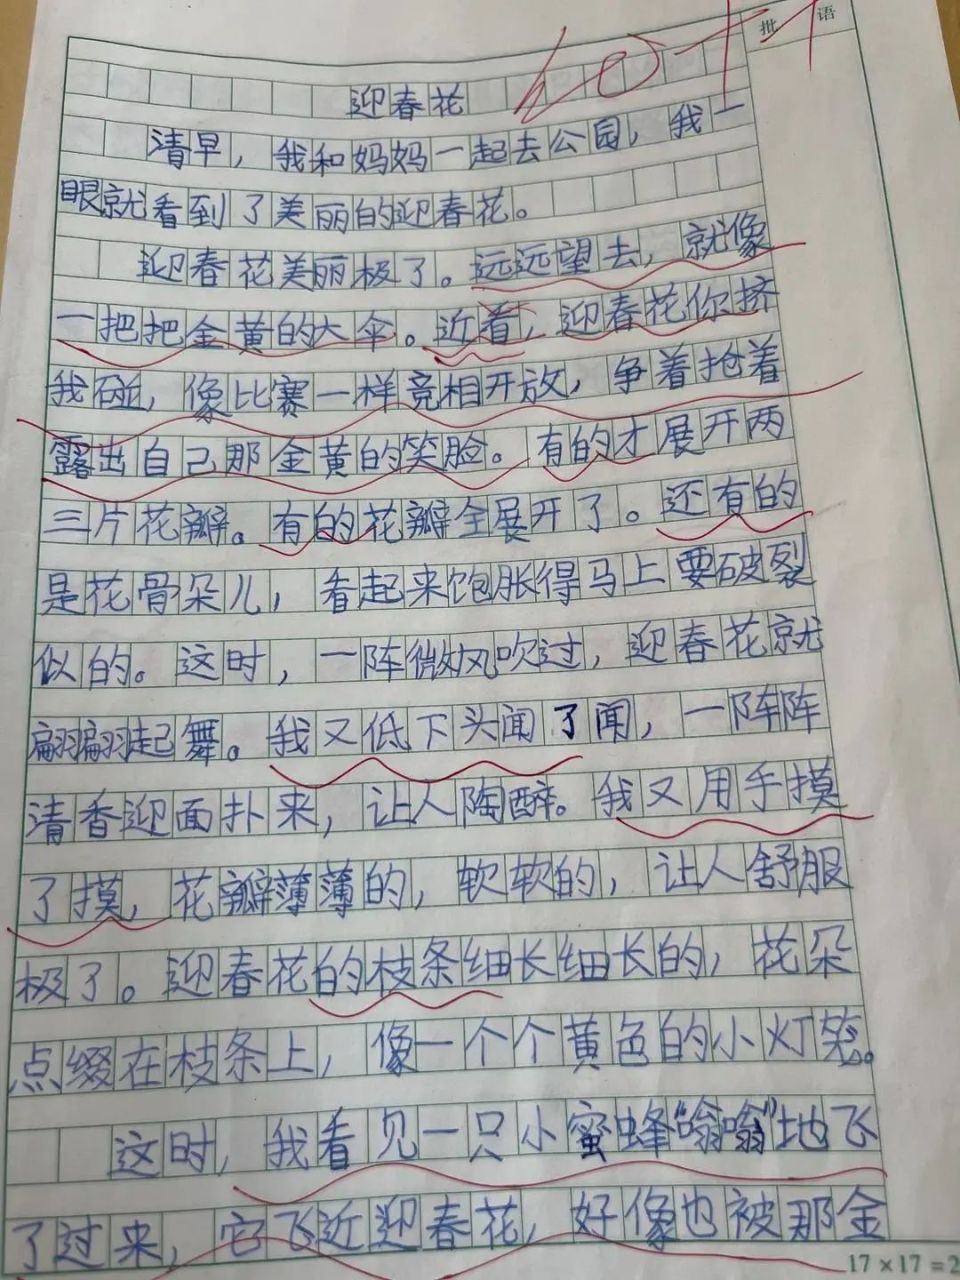 批 语
迎春花
清早，我和妈妈一起去公园，我一
眼就看到了美丽的迎春花。
迎春花美丽极了。远远望去，就像
一把把金黄的大伞。近看，迎春花你挤
我碰，像比赛一样竞相开放，争着抢着
露出自己那金黄的笑脸。有的才展开两
三片花瓣。有的花瓣全展开了。还有的
是花骨朵儿，看起来饱胀得马上要破裂
似的。这时，一阵微风吹过，迎春花就
翩翩起舞。我又低下头闻了闻，一阵阵
清香迎面扑来，让人陶醉。我又用手摸
了摸，花瓣薄薄的，软软的，让人舒服
极了。迎春花的枝条细长细长的，花朵
点缀在枝条上，像一个个黄色的小灯笼。
这时，我看见一只小蜜蜂“嗡嗡”地飞
了过来，它飞近迎春花，好像也被那金
17×17=2